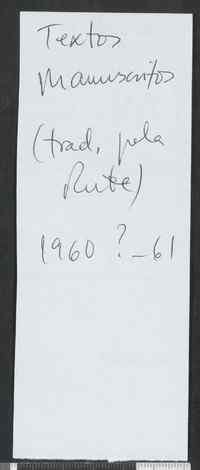 Textos
Manuscritos
(trad. pela
Rute)
1960 ? _ 61